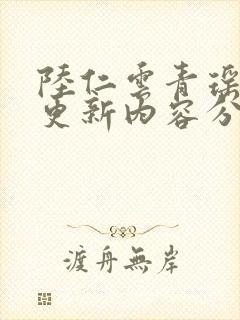 陸仁雲青瑤
更新內容分
渡舟無岸